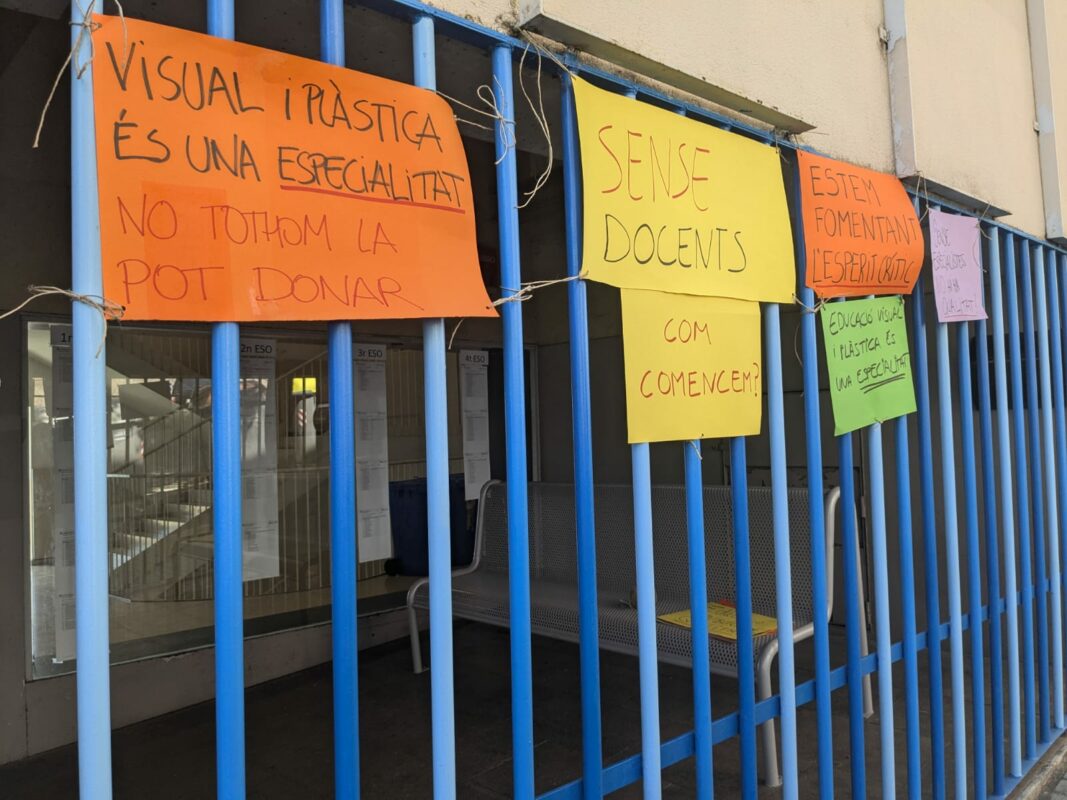 VISUAL i PLÀSTICA
ÉS UNA ESPECIALITAT
NO TOTHOM LA
POT DONAR
SENSE
DOCENTS
COM
COMENCEM?
ESTEM
FOMENTANT
L'ESPERIT CRÍTIC
EDUCACIÓ VISUAL
i PLÀSTICA ÉS
UNA ESPECIALITAT
SENSE
ESPECIALISTES
NO HI HA
QUALITAT!
1r
2n ESO
3r ESO
4t ESO